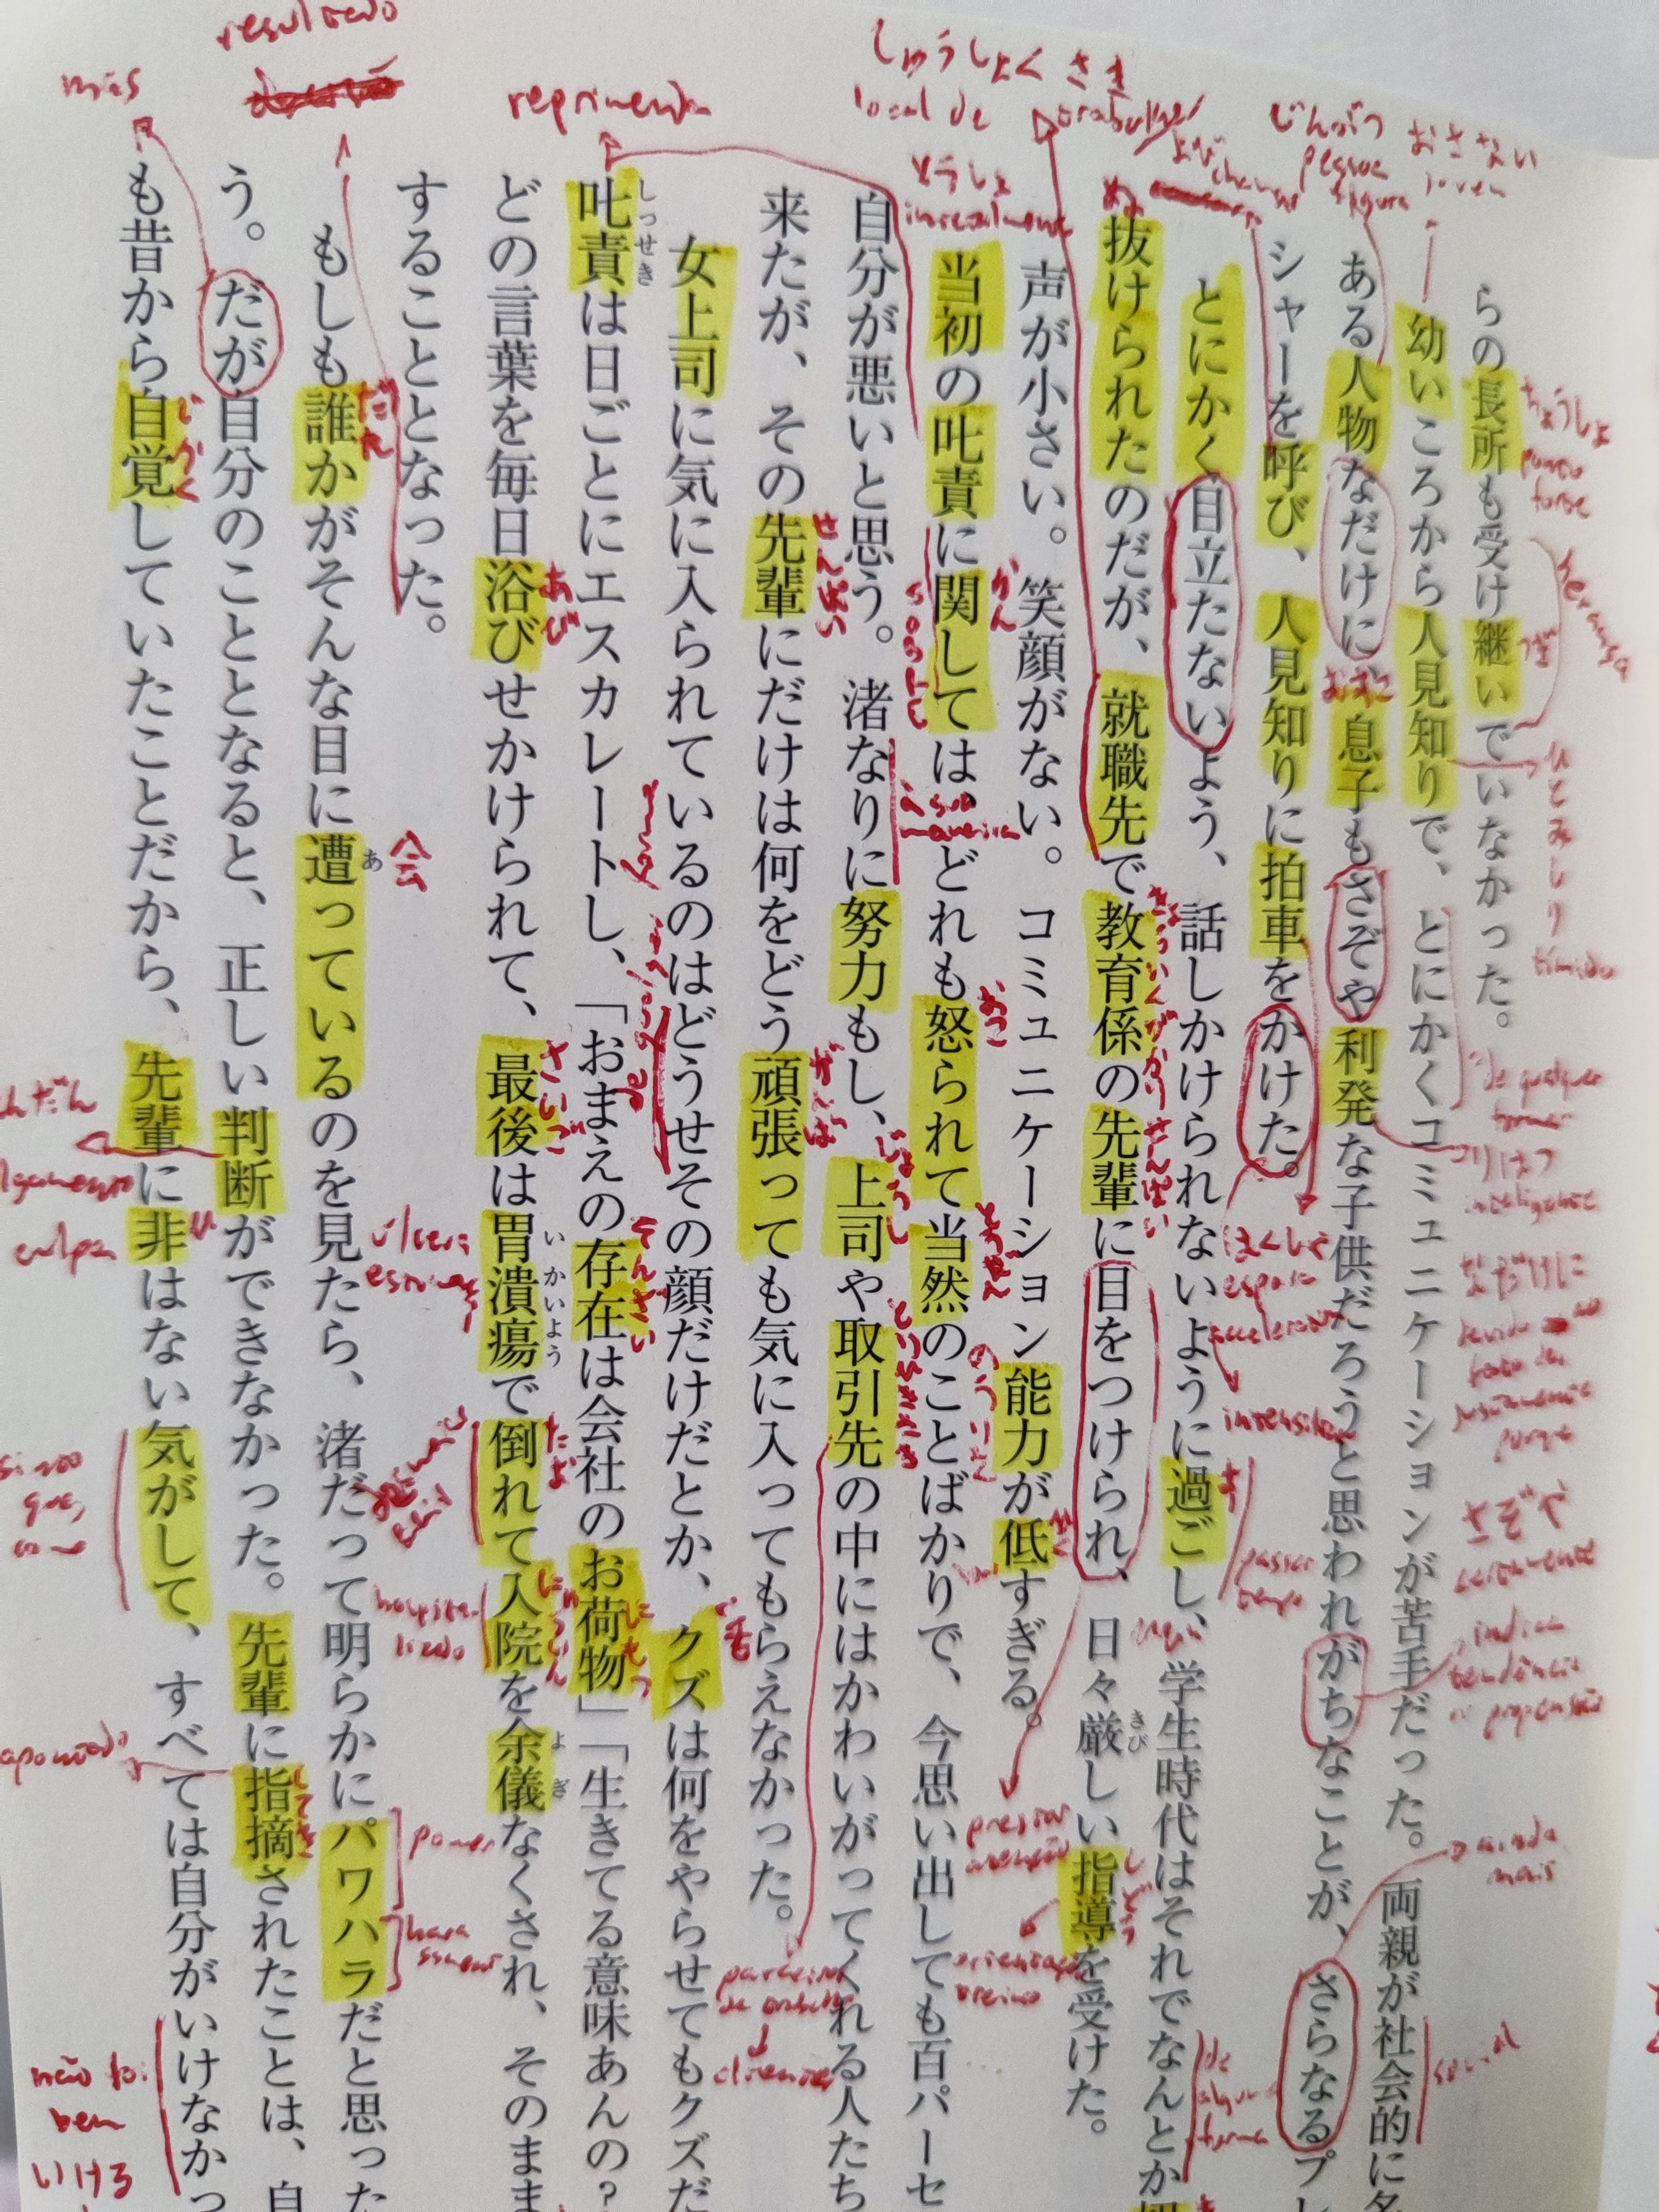 らの長所も受け継いでいなかった。
幼いころから人見知りで、とにかくコミュニケーションが苦手だった。両親が社会的に名
ある人物なだけに、息子もさぞや利発な子供だろうと思われがちなことが、さらなるプレ
シャーを呼び、人見知りに拍車をかけた。
とにかく目立たないよう、話しかけられないように過ごし、学生時代はそれでなんとか切
抜けられたのだが、就職先で教育係の先輩に目をつけられ、日々厳しい指導を受けた。
声が小さい。笑顔がない。コミュニケーション能力が低すぎる。
当初の叱責に関しては、どれも怒られて当然のことばかりで、今思い出しても百パーセ
自分が悪いと思う。渚なりに努力もし、上司や取引先の中にはかわいがってくれる人たち
来たが、その先輩にだけは何をどう頑張っても気に入ってもらえなかった。
女上司に気に入られているのはどうせその顔だけだとか、クズは何をやらせてもクズだ
叱責は日ごとにエスカレートし、「おまえの存在は会社のお荷物」「生きてる意味あんの?
どの言葉を毎日浴びせかけられて、最後は胃潰瘍で倒れて入院を余儀なくされ、そのまま
することとなった。
もしも誰かがそんな目に遭っているのを見たら、渚だって明らかにパワハラだと思った
う。だが自分のこととなると、正しい判断ができなかった。先輩に指摘されたことは、自
も昔から自覚していたことだから、先輩に非はない気がして、すべては自分がいけなかっ
しっせき
あ
いかいよう
よぎ
きび
mas
resultado
reprimenda
しゅうしょく さき
local de
trabalho
とうしょ
inicialmente
よび
じんぶつ
pessoa
figura
おさない
jovem
ぬ
ちょうしょ
ponto
forte
つ
ひとみしり
tímido
de qualquer
forma
りはつ
inteligente
なだけに
さぞや
certamente
indica
tendência
ainda
mais
social
de
alguma
forma
passar
tempo
す
はくしゃ
espora
acelerador
intensificar
prestar
atenção
しどう
orientação
treino
ひび
きょういくがかり
せんぱい
かん
sobre
おこ
とうぜん
のうりょく
ひく
à sua
maneira
じょうし
とりひきさき
parceiro
de trabalho
clientes
せんぱい
がんば
そんざい
にもつ
あび
さいご
たお
にゅういん
úlcera
hospita
lizado
だれ
会
power
hara
ssment
じかく
culpa
ひ
してき
apontado
não foi
bem
いける